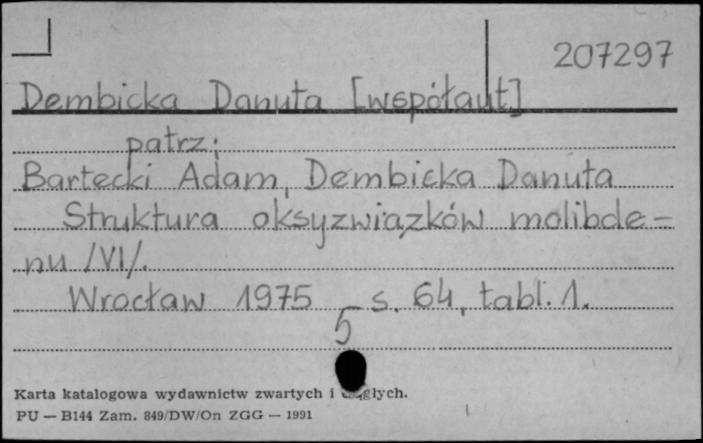 207297
Dembicka Danuta [współaut]
patrz:
Bartecki Adam, Dembicka Danuta
Struktura oksyzwiązków molibde-
nu /VI/.
Wrocław 1975 s. 64, tabl. 1.
5
Karta katalogowa wydawnictw zwartych i ciągłych.
PU — B144 Zam. 849/DW/On ZGG — 1991